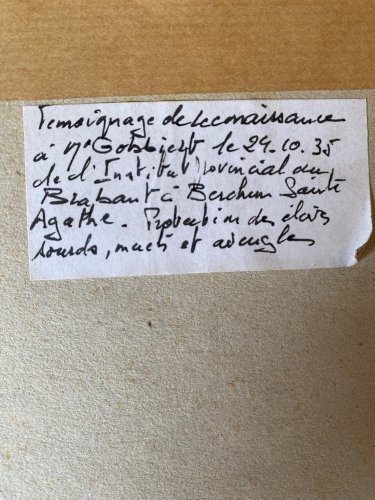 Temoignage de reconaissance
à Mr Gobbiert le 29.10.35
de l'Institut provincial du
Brabant à Berchem Sainte
Agathe. Protection des élèves
sourds, muets et aveugles